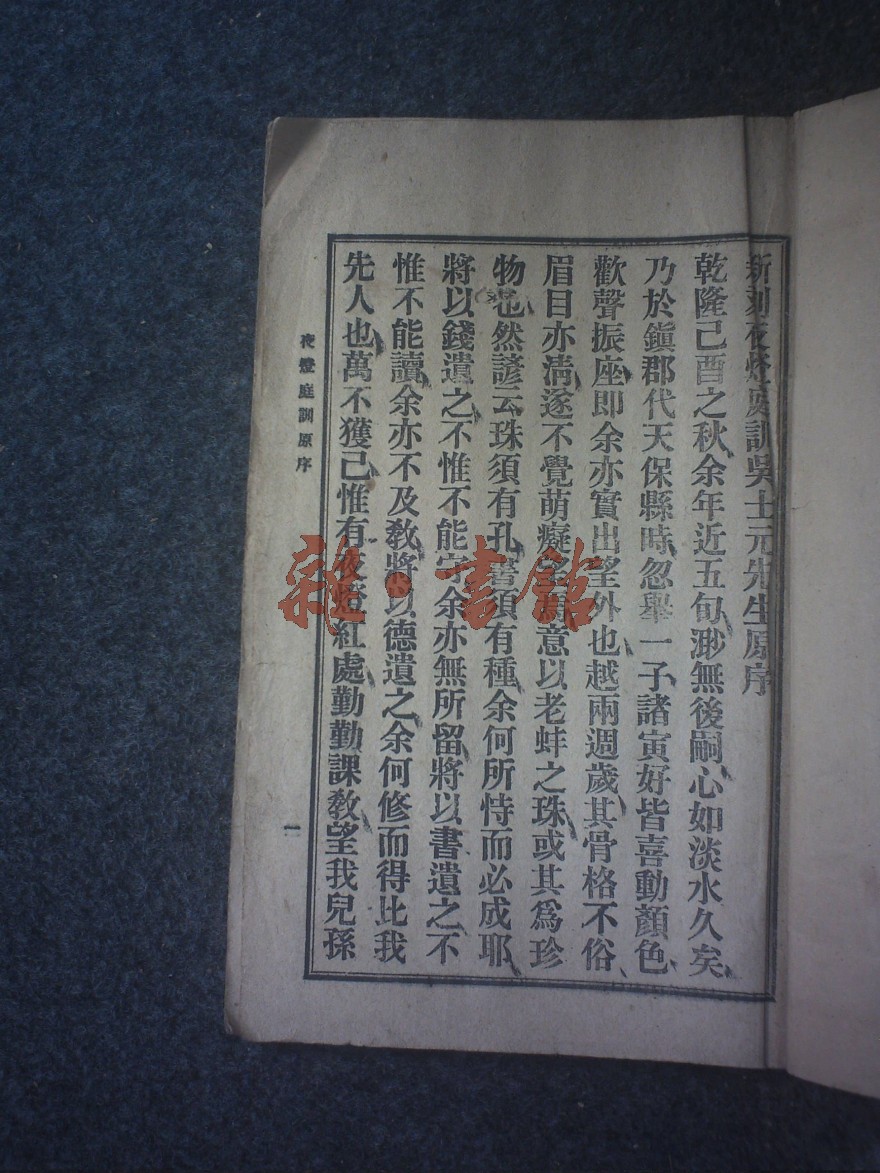 新刻夜燈庭訓吳士元先生原序
乾隆己酉之秋余年近五旬渺無後嗣心如淡水久矣、
乃於鎭郡代天保縣時、忽舉一子、諸寅好皆喜動顏色、
歡聲振座、即余亦實出望外也、越兩週歲、其骨格不俗、
眉目亦淸、遂不覺萌癡望、有意以老蚌之珠、或其爲珍
物也、然諺云珠須有孔、書須有種、余何所恃而必成耶、
將以錢遺之、不惟不能守、余亦無所留、將以書遺之、不
惟不能讀、余亦不及敎、將以德遺之、余何修而得比我
先人也、萬不獲已、惟有夜燈紅處、勤勤課敎、望我兒孫
夜燈庭訓原序
一
雜·書館